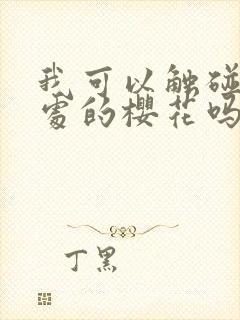 我可以触碰
处的樱花吗
丁黑